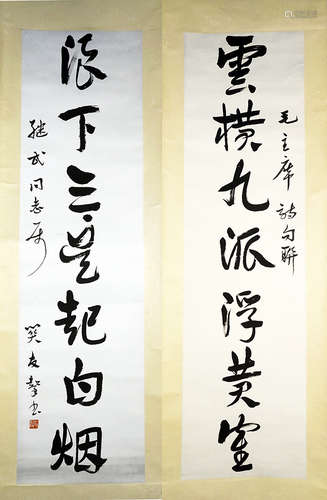 毛主席詩句聯
雲橫九派浮黄寉
浪下三吴起白烟
继武同志属
関友聲书